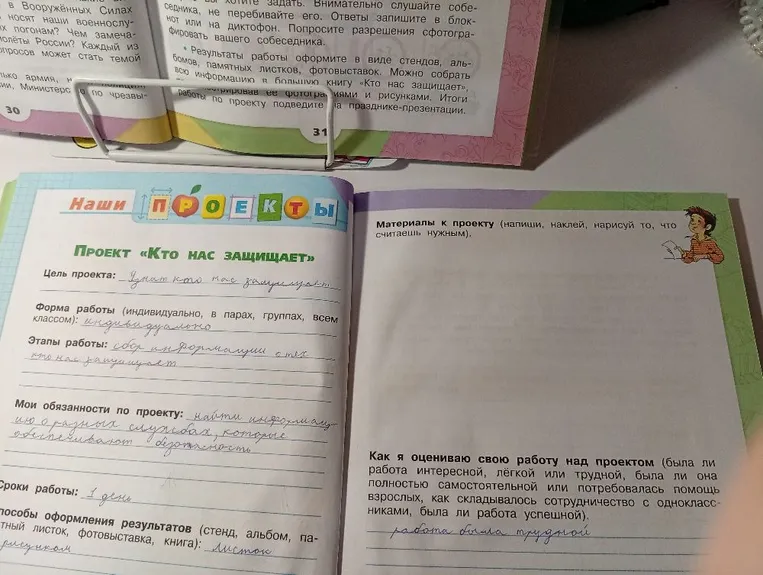 в Вооружённых Силах
носят наши военнослу-
погонам? Чем замеча-
лёты России? Каждый из
просов может стать темой
лько армия, н
ии, Министерс по чрезвы-
30
хотите задать. Внимательно слушайте собе-
седника, не перебивайте его. Ответы запишите в блок-
нот или на диктофон. Попросите разрешения сфотогра-
фировать вашего собеседника.
• Результаты работы оформите в виде стендов, аль-
бомов, памятных листков, фотовыставок. Можно собрать
всю информацию в большую книгу «Кто нас защищает»,
ировав её фотографиями и рисунками. Итоги
работы по проекту подведите на празднике-презентации.
31
Наши ПРОЕКТЫ
ПРОЕКТ «КТО НАС ЗАЩИЩАЕТ»
Цель проекта: Узнать кто нас защищает
Форма работы (индивидуально, в парах, группах, всем
классом): индивидуально
Этапы работы: сбор информации о тех
кто нас защищает
Мои обязанности по проекту: найти информац-
ию о разных службах, которые
обеспечивают безопасность
Сроки работы: 1 день
пособы оформления результатов (стенд, альбом, па-
тный листок, фотовыставка, книга): листок
рисунком
Материалы к проекту (напиши, наклей, нарисуй то, что
считаешь нужным).
Как я оцениваю свою работу над проектом (была ли
работа интересной, лёгкой или трудной, была ли она
полностью самостоятельной или потребовалась помощь
взрослых, как складывалось сотрудничество с однокласс-
никами, была ли работа успешной).
работа была трудной